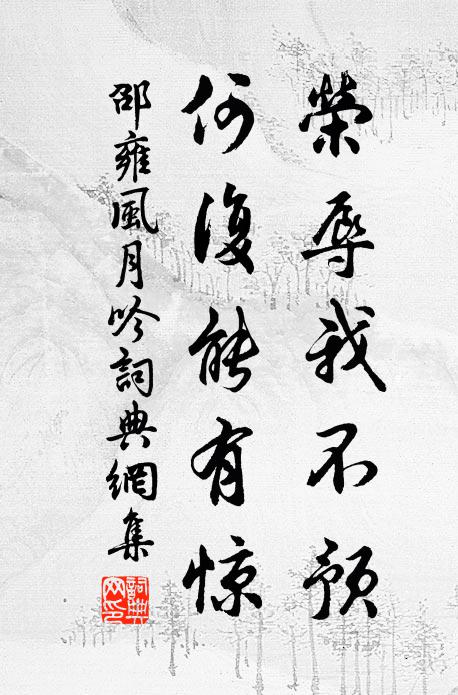 榮辱我不預
何復能有惊
邵雍風月吟詞典網集
詞典
网印